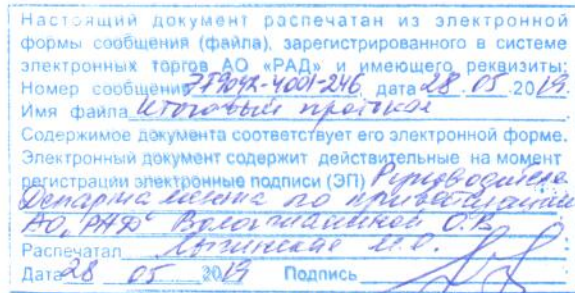 Настоящий документ распечатан из электронной
формы сообщения (файла), зарегистрированного в системе
электронных торгов АО «РАД» и имеющего реквизиты:
Номер сообщения дата 28 05 2019.
Имя файла Итоговый протокол
Содержимое документа соответствует его электронной форме.
Электронный документ содержит действительные на момент
регистрации электронные подписи (ЭП) Руководителя
Департамента по приватизации
АО "РАД" О.В.
Распечатал
Дата 28 05 2019 Подпись